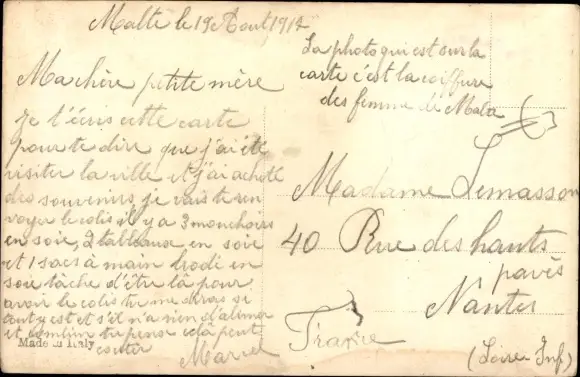 Malte le 19 Aout 1917
La photo qui est sur la
carte c'est la coiffure
des femme de Malte
Ma chère petite mère
je t'écris cette carte
pour te dire que j'ai été
visiter la ville et j'ai acheté
des souvenirs, je vais te ren
voyer le colis il y a 3 mouchoirs
en soie, 2 tableaux en soie
et 1 sacs à main brodé en
soie tâche d'être là pour
avoir le colis tu me diras si
tout y est et s'il n'a rien d'abimer
et combien tu pense cela peut
couter
Marcel
Madame Lemasson
40 Rue des hauts
pavés
Nantes
France
(Loire Inf)
Made in Italy